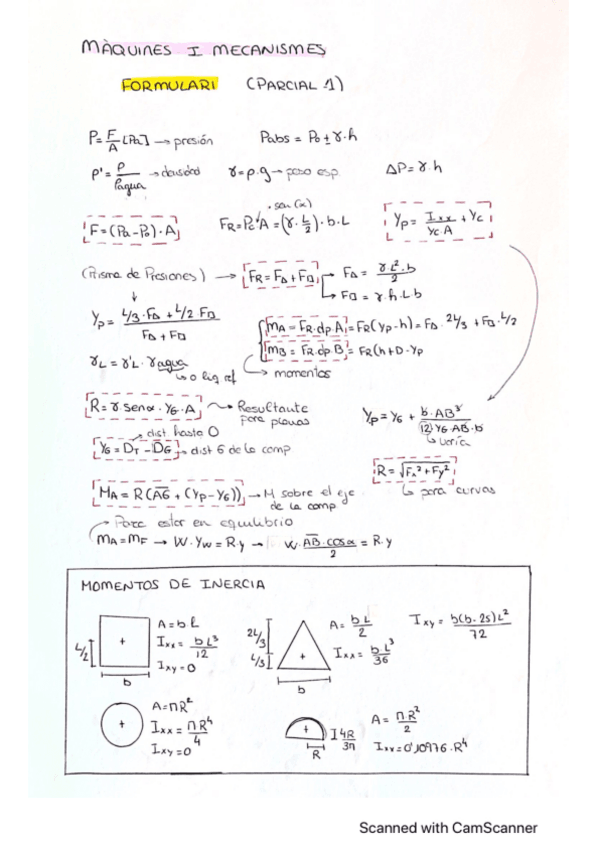 MÀQUINES I MECANISMES
FORMULARI (PARCIAL 1)
P = F/A [Pa] → presión Pabs = Po ± γ·h
ρ' = ρ/ρagua → densidad γ = ρ·g → peso esp. ΔP = γ·h
F = (Pa - Po)·A FR = Pc·A = (γ·L/2)·b·L Yp = Ixx/Yc·A + Yc
·sen(α)
(Prisma de Presiones) → FR = FΔ + F□ → FΔ = γ·L²·b/2
↳ F□ = γ·h·L b
Yp = L/3·FΔ + L/2 F□ / FΔ + F□
MA = FR·dp.A = FR(Yp-h) = FΔ·2L/3 + F□·L/2
MB = FR·dp.B = FR(h+D-Yp
γL = γ'L·γagua
↳ momentos
R = γ·senα·YG·A → Resultante para planas
Yp = YG + b·AB³/(12)·YG·AB·b
↳ varía
→ dist hasta O
YG = DT - DG → dist G de la comp
R = √Fx² + Fy²
↳ para curvas
MA = R(AG + (Yp - YG)) → M sobre el eje de la comp
→ Para estar en equilibrio
MA = MF → W·YW = R·y → W·AB·cosα/2 = R·y
MOMENTOS DE INERCIA
L/2
b
A = b L
Ixx = b L³/12
Ixy = 0
2L/3
L/3
b
A = b L/2
Ixx = b L³/36
Ixy = b(b-2s)L²/72
A = πR²
Ixx = πR⁴/4
Ixy = 0
4R/3π
R
A = πR²/2
Ixx = 0'10976·R⁴
Scanned with CamScanner